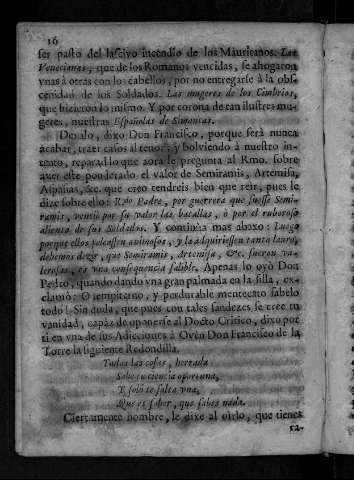 16
ser pasto del lascivo incendio de los Mauricanos. Las
Venecianas, que de los Romanos vencidas, se ahogaron
vnas à otras con los cabellos, por no entregarse à la obs-
cenidad de los Soldados. Las mugeres de los Cimbrios,
que hizieron lo mismo. Y por corona de tan ilustres mu-
geres, nuestras Españolas de Simancas.
Dexalo, dixo Don Francisco, porque serà nunca
acabar, traer casos al tenor; y bolviendo à nuestro in-
tento, reparad lo que aora se pregunta al Rmo. sobre
aver este ponderado el valor de Semiramis, Artemisa,
Aspasias, &c. que creo tendreis bien que reir, pues le
dize sobre ello: R.do Padre, por guerrera que fuesse Semi-
ramis, venciò por su valor las batallas, ò por el ruboroso
aliento de sus Soldados. Y continùa mas abaxo: Luego
porque ellos peleassen animosos, y la adquiriessen tanto lauro,
debemos dezir, que Semiramis, Artemisa, &c. fueron va-
lerosas, es vna consequencia falible. Apenas lo oyò Don
Pedro, quando dando vna gran palmada en la silla, ex-
clamò: O sempiterno, y perdurable mentecato sabelo
todo! Sin duda, que pues con tales sandezes se cree tu
vanidad, capàz de oponerse al Docto Critico, dixo por
ti en vna de sus Adicciones à Ovèn Don Francisco de la
Torre la siguiente Redondilla.
Todas las cosas, herrada
Sabe tu ciencia oportuna,
Y solo te falta vna,
Que es saber, que sabes nada.
Ciertamente hombre, le dixe al oirlo, que tienes
sa-